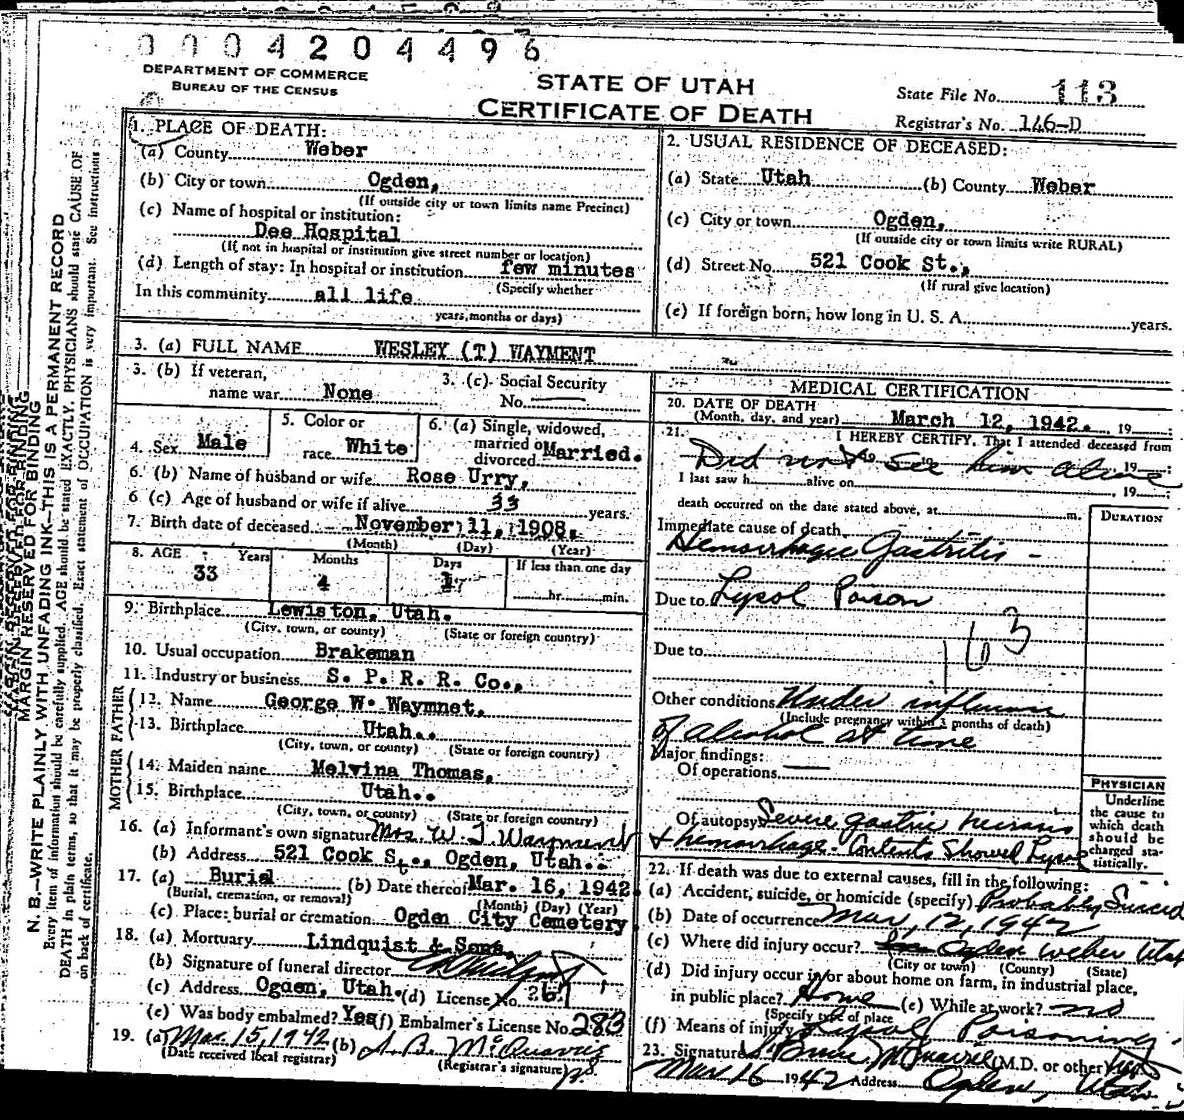 0004204496
DEPARTMENT OF COMMERCE
BUREAU OF THE CENSUS
STATE OF UTAH
CERTIFICATE OF DEATH
State File No. 113
Registrar's No. 146-D
MARGIN RESERVED FOR BINDING
N. B.—WRITE PLAINLY WITH UNFADING INK—THIS IS A PERMANENT RECORD
Every item of information should be carefully supplied. AGE should be stated EXACTLY. PHYSICIANS should state CAUSE OF
DEATH in plain terms, so that it may be properly classified. Exact statement of OCCUPATION is very important. See instructions
on back of certificate.
1. PLACE OF DEATH:
(a) County Weber
(b) City or town Ogden,
(If outside city or town limits name Precinct)
(c) Name of hospital or institution:
Dee Hospital
(If not in hospital or institution give street number or location)
(d) Length of stay: In hospital or institution few minutes
(Specify whether
In this community all life
years, months or days)
2. USUAL RESIDENCE OF DECEASED:
(a) State Utah (b) County Weber
(c) City or town Ogden,
(If outside city or town limits write RURAL)
(d) Street No. 521 Cook St.,
(If rural give location)
(e) If foreign born, how long in U. S. A. years.
3. (a) FULL NAME WESLEY (T) WAYMENT
3. (b) If veteran,
name war None
3. (c) Social Security
No.
4. Sex Male
5. Color or
race White
6. (a) Single, widowed,
married or
divorced Married.
6. (b) Name of husband or wife Rose Urry,
6 (c) Age of husband or wife if alive 33 years.
7. Birth date of deceased November 11, 1908,
(Month) (Day) (Year)
8. AGE Years Months Days If less than one day
33 4 1 hr. min.
9. Birthplace Lewiston, Utah.
(City, town, or county) (State or foreign country)
10. Usual occupation Brakeman
11. Industry or business S. P. R. R. Co.,
FATHER
12. Name George W. Waymnet,
13. Birthplace Utah..
(City, town, or county) (State or foreign country)
MOTHER
14. Maiden name Melvina Thomas,
15. Birthplace Utah..
(City, town, or county) (State or foreign country)
16. (a) Informant's own signature Mrs W. T Wayment
(b) Address 521 Cook St., Ogden, Utah..
17. (a) Burial (b) Date thereof Mar. 16, 1942.
(Burial, cremation, or removal) (Month) (Day) (Year)
(c) Place: burial or cremation Ogden City Cemetery
18. (a) Mortuary Lindquist & Sons.
(b) Signature of funeral director
(c) Address Ogden, Utah. (d) License No. 267
(e) Was body embalmed? Yes (f) Embalmer's License No. 283
19. (a) Mar. 15, 1942 (b)
(Date received local registrar) (Registrar's signature)
MEDICAL CERTIFICATION
20. DATE OF DEATH
(Month, day, and year) March 12, 1942. 19
21. I HEREBY CERTIFY, That I attended deceased from
Did not see him alive
to 19
I last saw h alive on , 19
death occurred on the date stated above, at m.
DURATION
Immediate cause of death
Hemorrhagic Gastritis -
Due to Lysol Poison
163
Due to
Other conditions Under influence
(Include pregnancy within 3 months of death)
of alcohol at time
Major findings:
Of operations
Of autopsy Severe gastric necrosis
& hemorrhage - Contents Showed Lysol
PHYSICIAN
Underline
the cause to
which death
should be
charged sta-
tistically.
22. If death was due to external causes, fill in the following:
(a) Accident, suicide, or homicide (specify) Probably Suicid
(b) Date of occurrence Mar, 12, 1942
(c) Where did injury occur? Ogden Weber Utah
(City or town) (County) (State)
(d) Did injury occur in or about home on farm, in industrial place,
in public place? Home (e) While at work? no
(Specify type of place
(f) Means of injury Lysol Poisoning.
23. Signature (M.D. or other)
Mar 16 1942 Address Ogden, Utah.